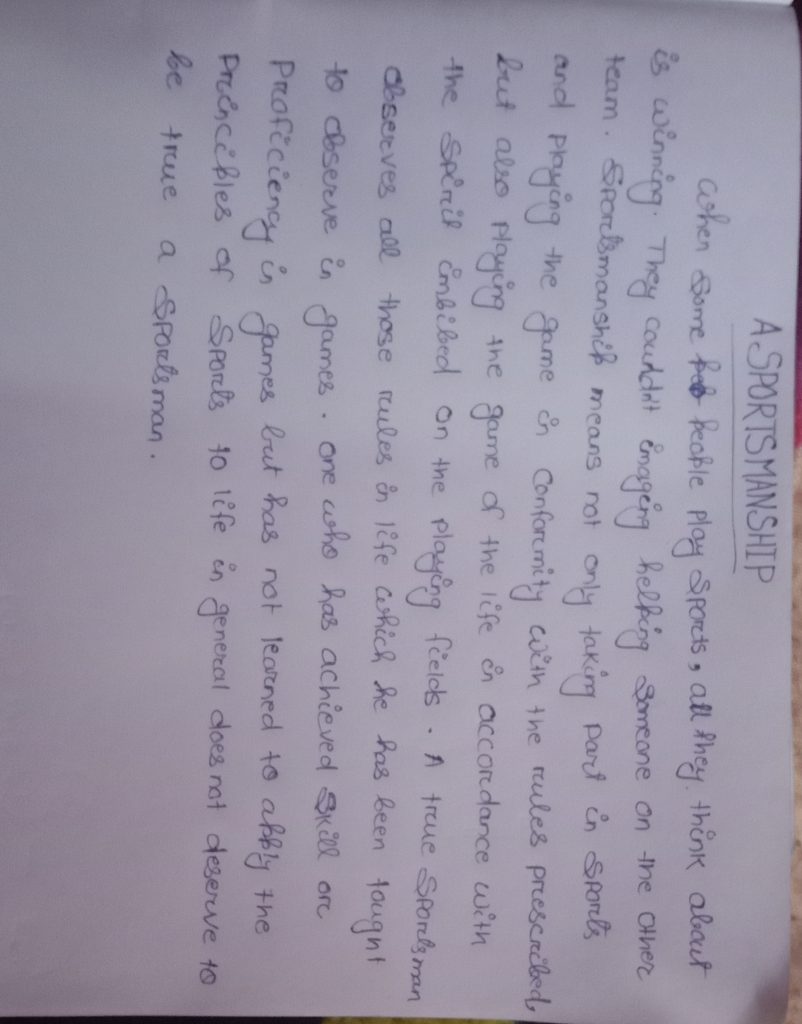 A SPORTSMANSHIP
When some people play sports, all they think about
is winning. They couldn't imaging helping someone on the other
team. Sportsmanship means not only taking part in sports
and playing the game in conformity with the rules prescribed,
but also playing the game of the life in accordance with
the spirit imbibed on the playing fields. A true sportsman
observes all those rules in life which he has been tought
to observe in games. one who has achieved skill or
proficiency in games but has not learned to apply the
principles of sports to life in general does not deserve to
be true a sportsman.